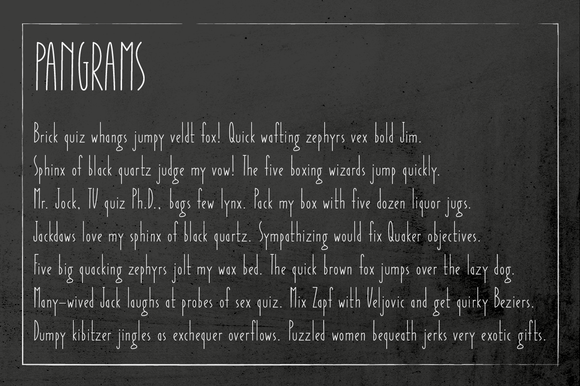 PANGRAMS
Brick quiz whangs jumpy veldt fox! Quick wafting zephyrs vex bold Jim.
Sphinx of black quartz judge my vow! The five boxing wizards jump quickly.
Mr. Jock, TV quiz Ph.D., bags few lynx. Pack my box with five dozen liquor jugs.
Jackdaws love my sphinx of black quartz. Sympathizing would fix Quaker objectives.
Five big quacking zephyrs jolt my wax bed. The quick brown fox jumps over the lazy dog.
Many-wived Jack laughs at probes of sex quiz. Mix Zapf with Veljovic and get quirky Beziers.
Dumpy kibitzer jingles as exchequer overflows. Puzzled women bequeath jerks very exotic gifts.